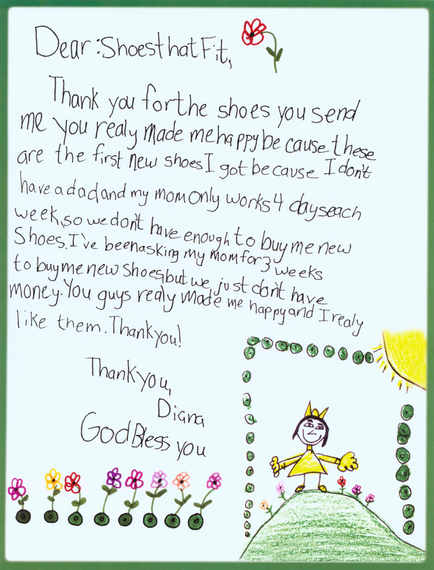 Dear: ShoesthatFit,
Thank you forthe shoes you send
me you realy made me happy be cause these
are the first new shoes I got be cause I don't
have a dad and my mom only works 4 days each
week, so we don't have enough to buy me new
Shoes. I've been asking my mom for 3 weeks
to buy me new shoes, but we just don't have
money. You guys realy made me happy and I realy
like them. Thank you!
Thank you,
Diana
God Bless you